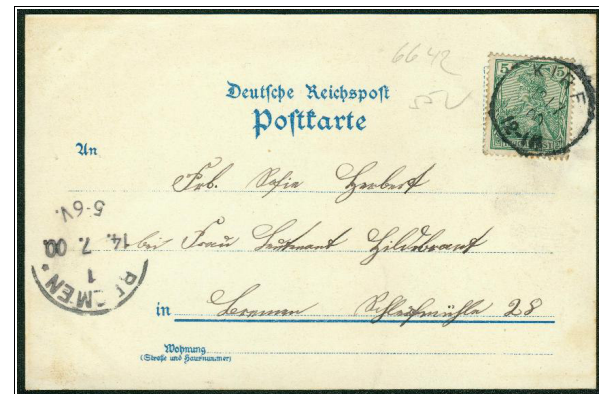 6642
Deutsche Reichspost
Postkarte
An
Frl. Sofie Herbert
bei Frau Leutenant Hildebrant
in Bremen Schleifmühle 28
Wohnung
(Straße und Hausnummer)
5
BREMEN *
1
14. 7. 00
5-6V.